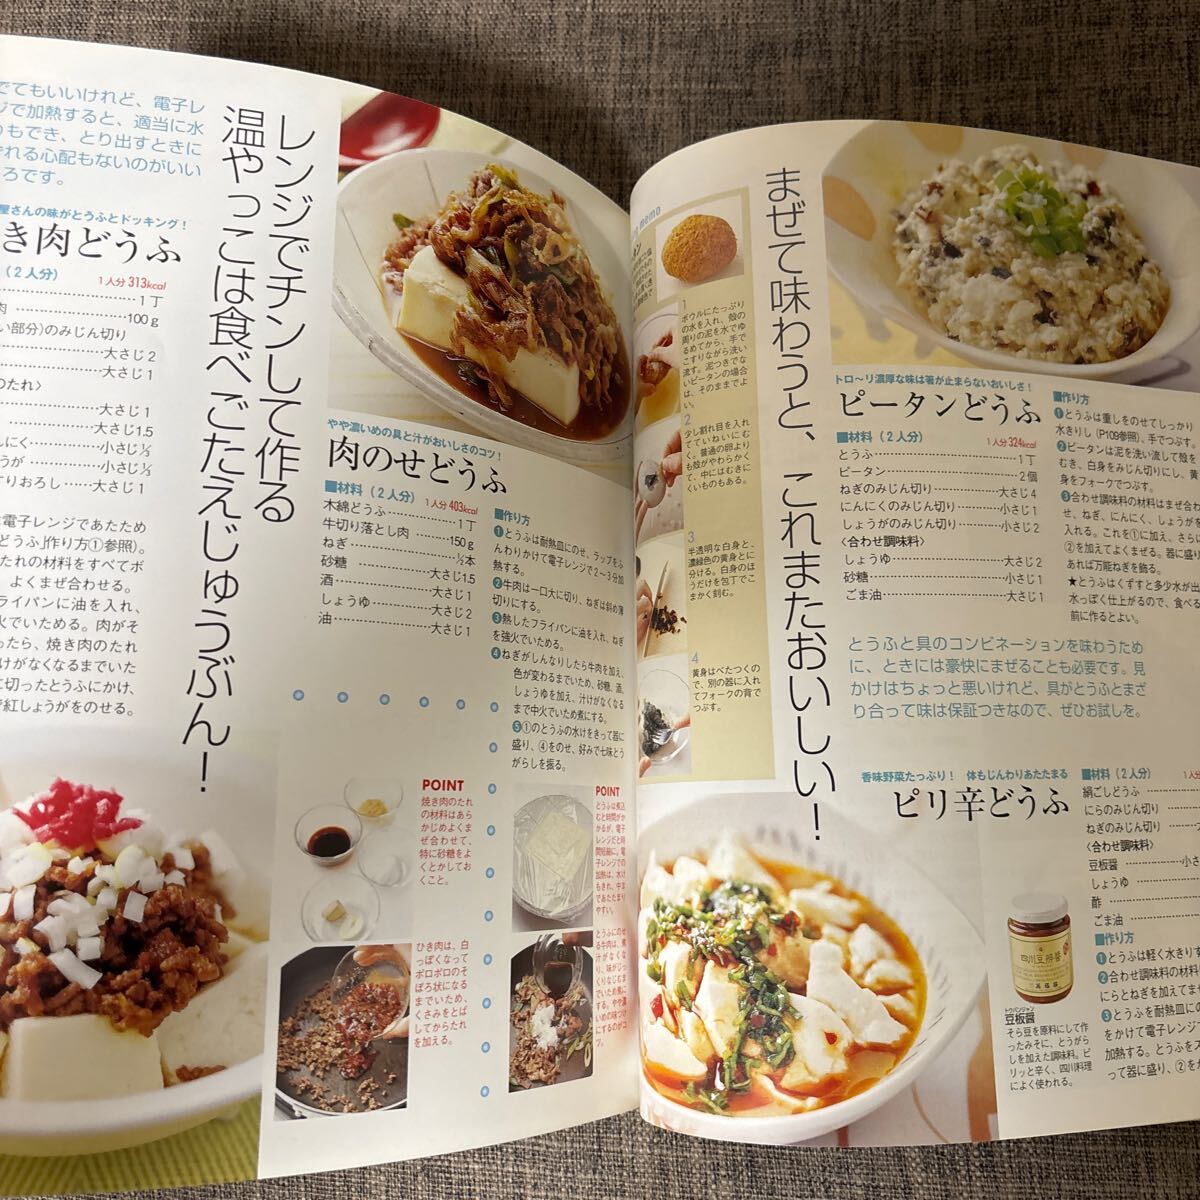 でてもいいけれど、電子レ
ジで加熱すると、適当に水
もでき、とり出すときに
れる心配もないのがいい
ろです。
レンジでチンして作る
温やっこは食べごたえじゅうぶん！
屋さんの味がとうふとドッキング！
き肉どうふ
(２人分)
１人分313kcal
１丁
肉
100ｇ
い部分)のみじん切り
大さじ２
大さじ１
のたれ〉
大さじ１
大さじ1.5
んにく
小さじ⅓
うが
小さじ⅓
すりおろし
大さじ１
は電子レンジであたため
どうふ」作り方①参照)。
たれの材料をすべてボ
よくまぜ合わせる。
ライパンに油を入れ、
火でいためる。肉がそ
ったら、焼き肉のたれ
けがなくなるまでいた
に切ったとうふにかけ、
紅しょうがをのせる。
やや濃いめの具と汁がおいしさのコツ！
肉のせどうふ
■材料（２人分）
１人分403kcal
木綿どうふ
１丁
牛切り落とし肉
150ｇ
ねぎ
½本
砂糖
大さじ1.5
酒
大さじ１
しょうゆ
大さじ２
油
大さじ１
■作り方
❶とうふは耐熱皿にのせ、ラップをふ
んわりかけて電子レンジで２～３分加
熱する。
❷牛肉は一口大に切り、ねぎは斜め薄
切りにする。
❸熱したフライパンに油を入れ、ねぎ
を強火でいためる。
❹ねぎがしんなりしたら牛肉を加え、
色が変わるまでいため、砂糖、酒、
しょうゆを加え、汁けがなくなる
まで中火でいため煮にする。
❺①のとうふの水けをきって器に
盛り、④をのせ、好みで七味とう
がらしを振る。
POINT
焼き肉のたれ
の材料はあら
かじめよくま
ぜ合わせて、
特に砂糖をよ
くとかしてお
くこと。
ひき肉は、白
っぽくなって
ポロポロのそ
ぼろ状になる
までいため、
くさみをとば
してからたれ
を加える。
POINT
とうふは煮込
むと時間がか
かるが、電子
レンジだと時
間短縮に。電
子レンジでの
加熱は、水け
もきれ、中ま
であたたまり
やすい。
とうふにのせ
る牛肉は、煮
汁がなくな
り、味がじっ
くりなじむま
でいため煮に
する。やや濃
いめの味つけ
にするのがコ
ツ。
まぜて味わうと、これまたおいしい！
memo
1
ボウルにたっぷり
の水を入れ、殻の
周りの泥を水でゆ
るめてから、手で
こすりながら洗い
流す。泥つきでな
いピータンの場合
は、そのままでよ
い。
2
少し割れ目を入れ
てていねいにむ
く。普通の卵より
も殻がやわらかく
て、中にはむきに
くいものもある。
3
半透明な白身と、
濃緑色の黄身とに
分ける。白身のほ
うだけを包丁でこ
まかく刻む。
4
黄身はべたつくの
で、別の器に入れ
てフォークの背で
つぶす。
トロ～リ濃厚な味は箸が止まらないおいしさ！
ピータンどうふ
■材料（２人分）
１人分324kcal
とうふ
１丁
ピータン
２個
ねぎのみじん切り
大さじ４
にんにくのみじん切り
小さじ１
しょうがのみじん切り
小さじ２
〈合わせ調味料〉
しょうゆ
大さじ２
砂糖
小さじ１
ごま油
大さじ１
■作り方
❶とうふは重しをのせてしっかり
水きりし（P109参照）、手でつぶす。
❷ピータンは泥を洗い流して殻を
むき、白身をみじん切りにし、黄
身をフォークでつぶす。
❸合わせ調味料の材料はまぜ合わ
せ、ねぎ、にんにく、しょうがを
入れる。これを①に加え、さらに
②を加えてよくまぜる。器に盛り
あれば万能ねぎを飾る。
★とうふはくずすと多少水が出
水っぽく仕上がるので、食べる
前に作るとよい。
とうふと具のコンビネーションを味わうため
に、ときには豪快にまぜることも必要です。見
かけはちょっと悪いけれど、具がとうふとまざ
り合って味は保証つきなので、ぜひお試しを。
香味野菜たっぷり！　体もじんわりあたたまる
ピリ辛どうふ
■材料（２人分）
１人分
絹ごしどうふ
にらのみじん切り
ねぎのみじん切り
〈合わせ調味料〉
豆板醤
小さ
しょうゆ
酢
ごま油
■作り方
❶とうふは軽く水きり
❷合わせ調味料の材料
にらとねぎを加えてまぜ
❸とうふを耐熱皿にの
をかけて電子レンジ
加熱する。とうふをス
って器に盛り、②をか
四川豆瓣醤
トウバンジャン
豆板醤
そら豆を原料にして作
ったみそに、とうがら
しを加えた調味料。ピ
リッと辛く、四川料理
によく使われる。